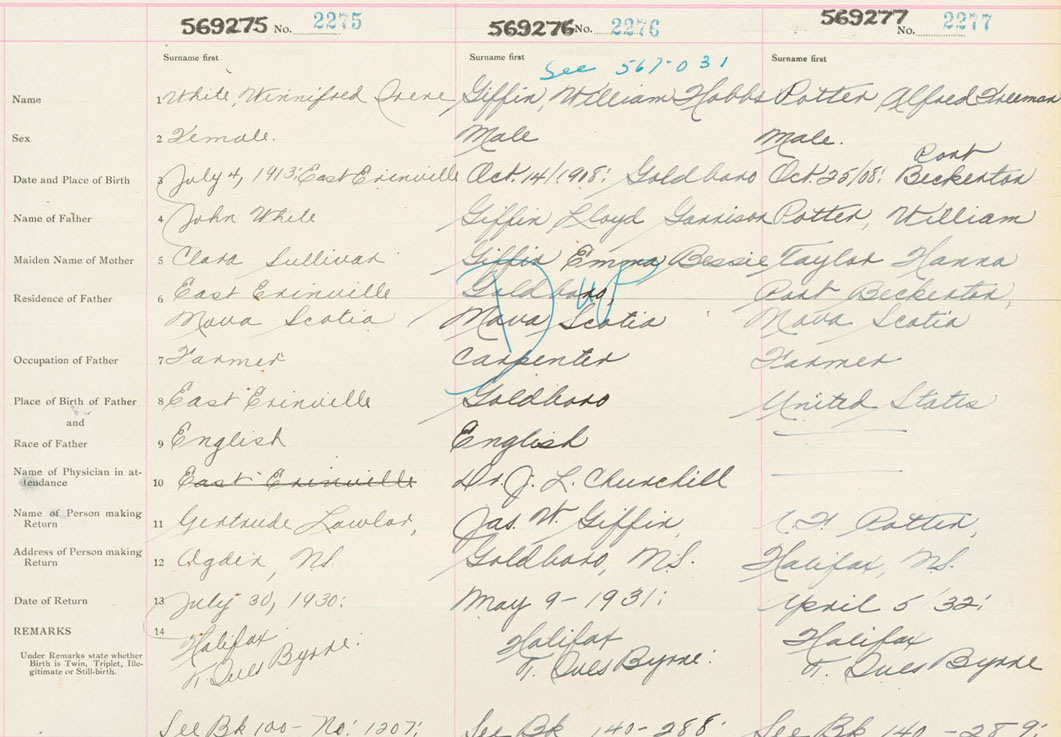 569275 No. 2275 569276 No. 2276 569277 No. 2277
Surname first Surname first Surname first
See 567-031
Name 1 White, Winnifred Irene Giffin, William Hobbs Potter Alfred Freeman
Sex 2 Female. Male Male.
Port
Date and Place of Birth 3 July 4, 1913: East Erinville Oct. 14/1908: Goldboro Oct. 25/08: Beckerton
Name of Father 4 John White Giffin Lloyd Garrison Potter, William
Maiden Name of Mother 5 Clara Sullivan Giffin Emma Bessie Taylor Hanna
Dup
Residence of Father 6 East Erinville Goldboro, Port Beckerton,
Nova Scotia Nova Scotia Nova Scotia
Occupation of Father 7 Farmer Carpenter Farmer
Place of Birth of Father 8 East Erinville Goldboro United States
and
Race of Father 9 English English
Name of Physician in at-
tendance 10 East Erinville Dr. J. L. Churchill
Name of Person making
Return 11 Gertrude Lawlor, Jas. W. Giffin, Potter,
Address of Person making
Return 12 Ogden, NS. Goldboro, N.S. Halifax, NS.
Date of Return 13 July 30, 1930: May 9-1931: April 5 '32:
REMARKS 14 Halifax Halifax Halifax
Under Remarks state whether
Birth is Twin, Triplet, Ille-
gitimate or Still-birth.
Ives Byrne: Ives Byrne: Ives Byrne
See Bk 100-No: 1207: See Bk 140-288: See Bk 140-289: